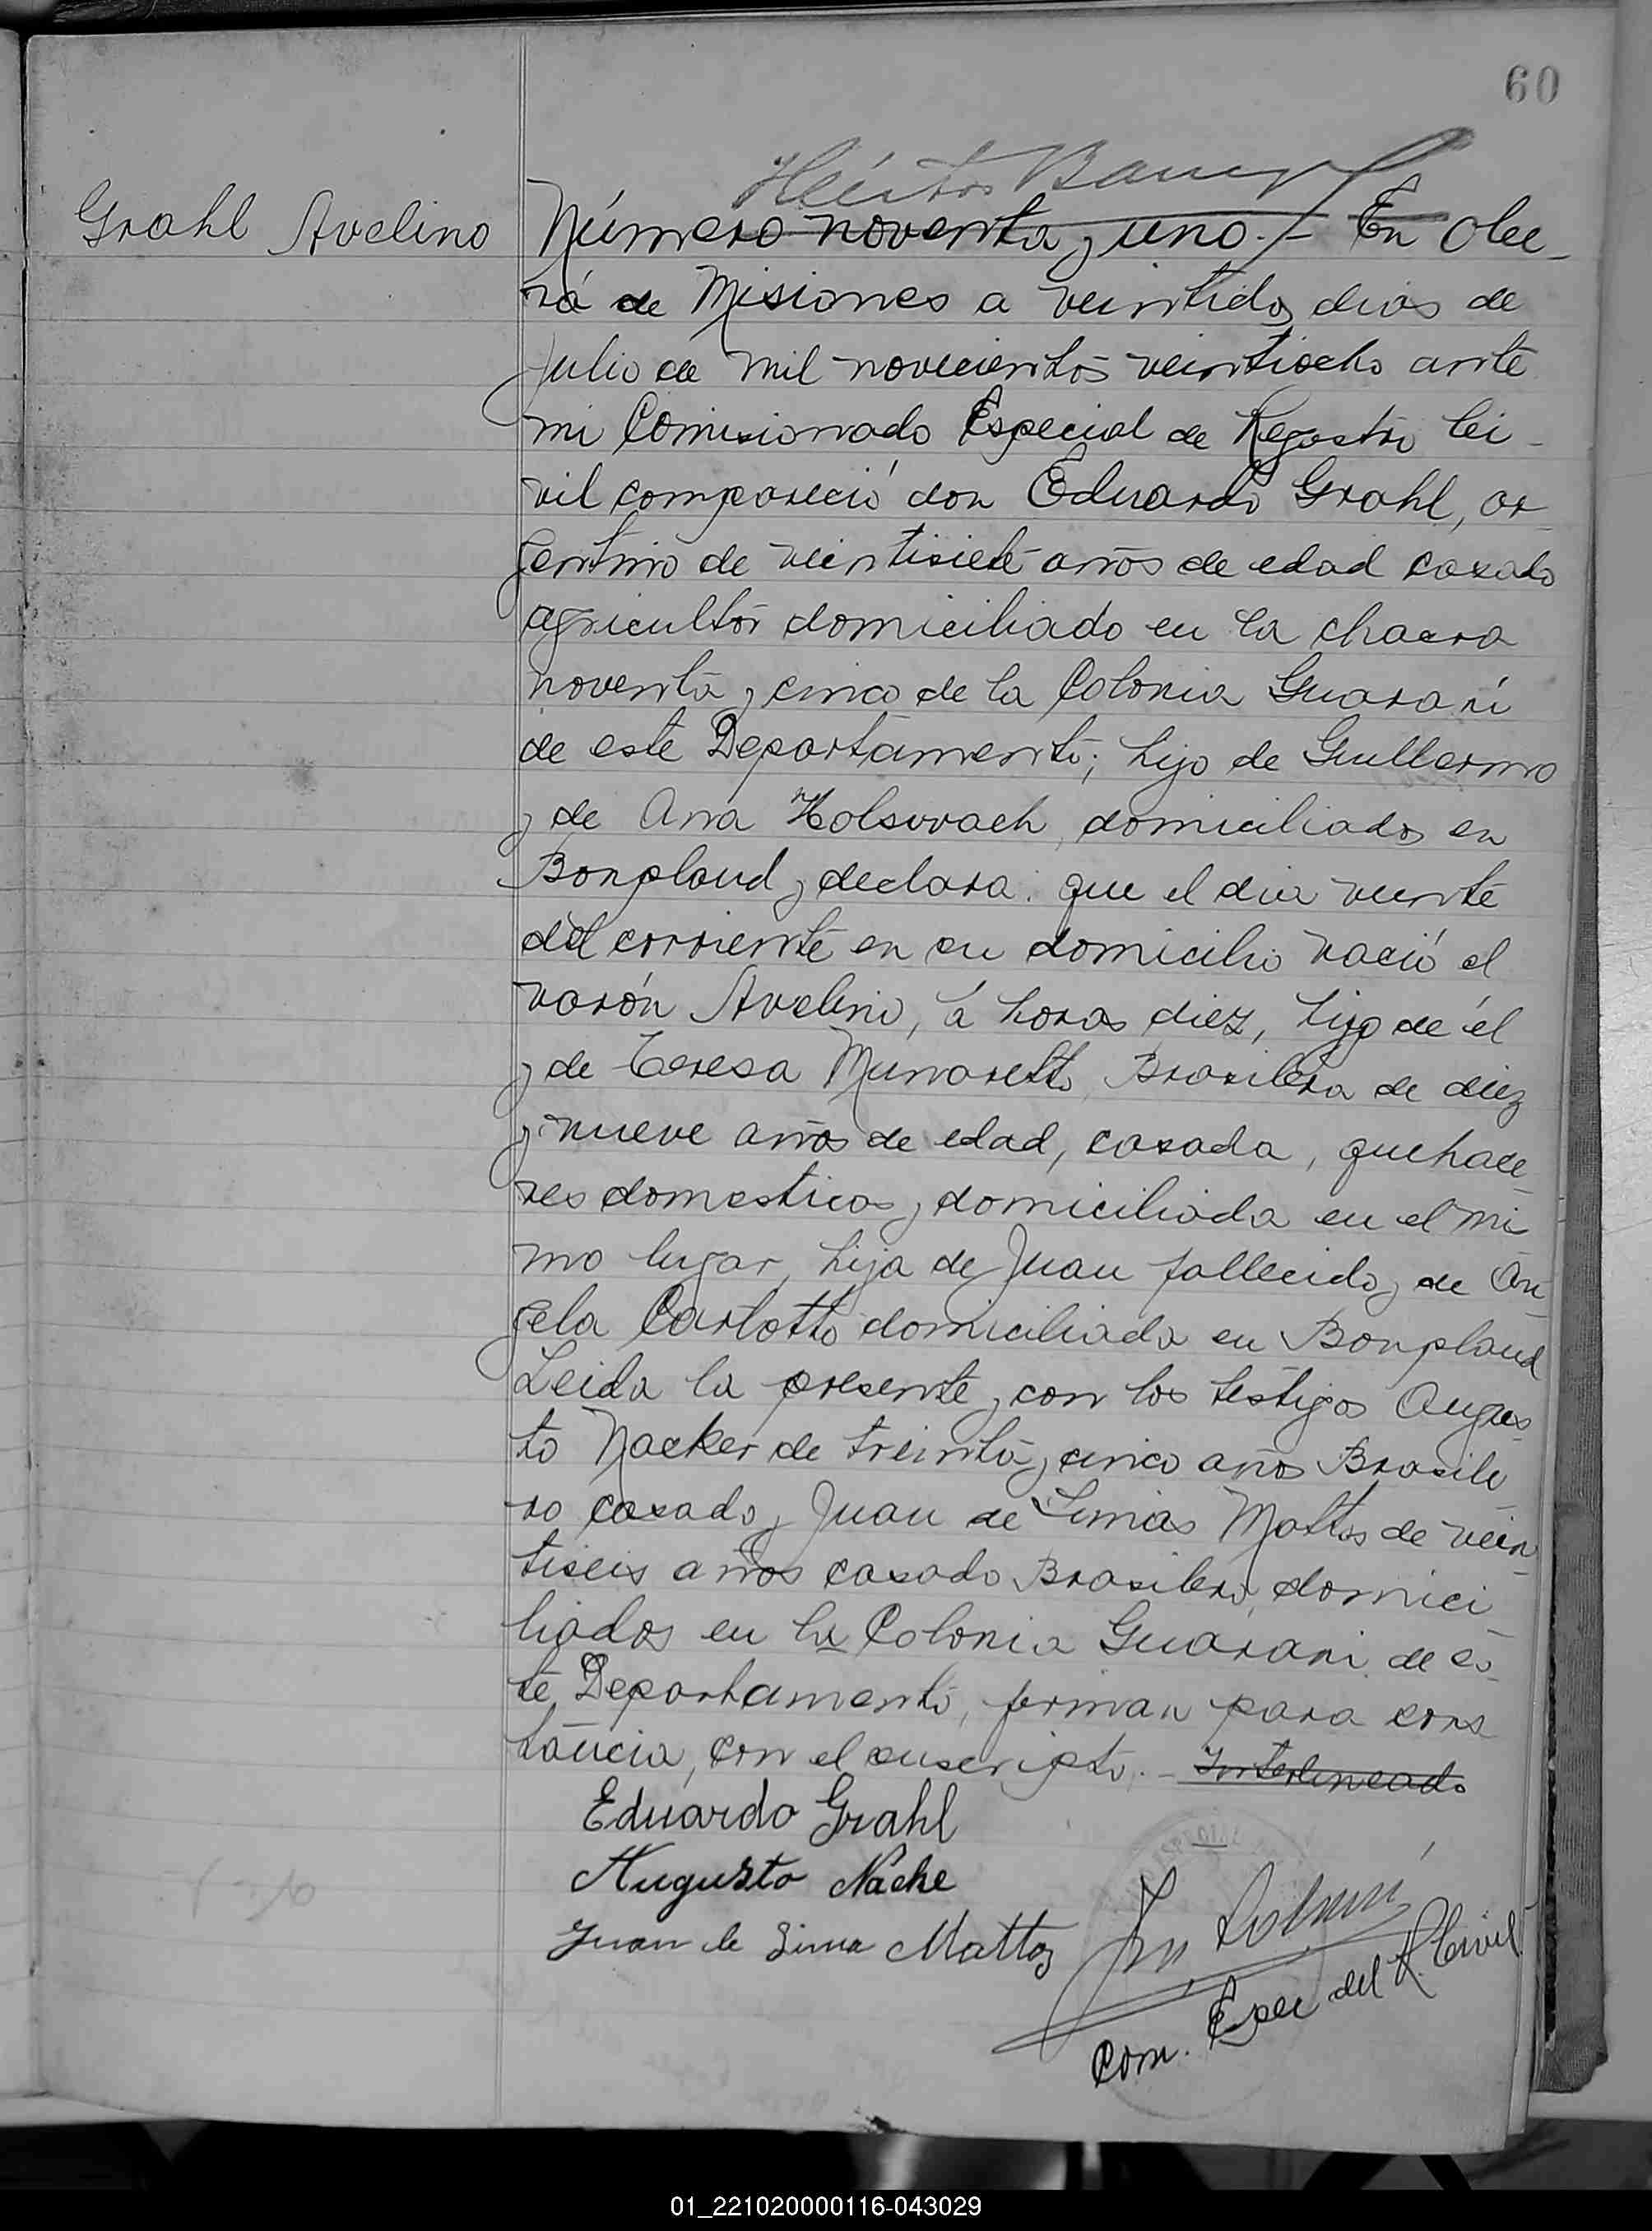 60
Héctor
Grahl Avelino
Número noventa y uno.- En Obe-
rá de Misiones a veintidos dias de
Julio de mil novecientos veintiocho ante
mi Comisionado Especial de Registro Ci-
vil compareció don Eduardo Grahl, ar-
gentino de veintisiete años de edad casado
agricultor domiciliado en la chacra
noventa y cinco de la Colonia Guaraní
de este Departamento; hijo de Guillermo
y de Ana Holsvvach, domiciliados en
Bonpland y declara: que el dia veinte
del corriente en su domicilio nació el
varón Avelino, a horas diez, hijo de él
y de Teresa Munaretto, Brasilera de diez
y nueve años de edad, casada, quehace-
res domesticos y domiciliada en el mi
mo lugar, hija de Juan fallecido y de An-
gela Carlotto domiciliada en Bonpland
Leida la presente y con los testigos Augus-
to Nacker de treinta y cinco años Brasile-
ro casado y Juan de Limas Mattos de vein-
tiseis años casado Brasilero, domici
liados en la Colonia Guarani de es-
te Departamento, firman para cons
tancia, con el suscripto.- Interlineado
Eduardo Grahl
Augusto Nacke
Juan de Lima Mattos
Com. Espe del R. Civil